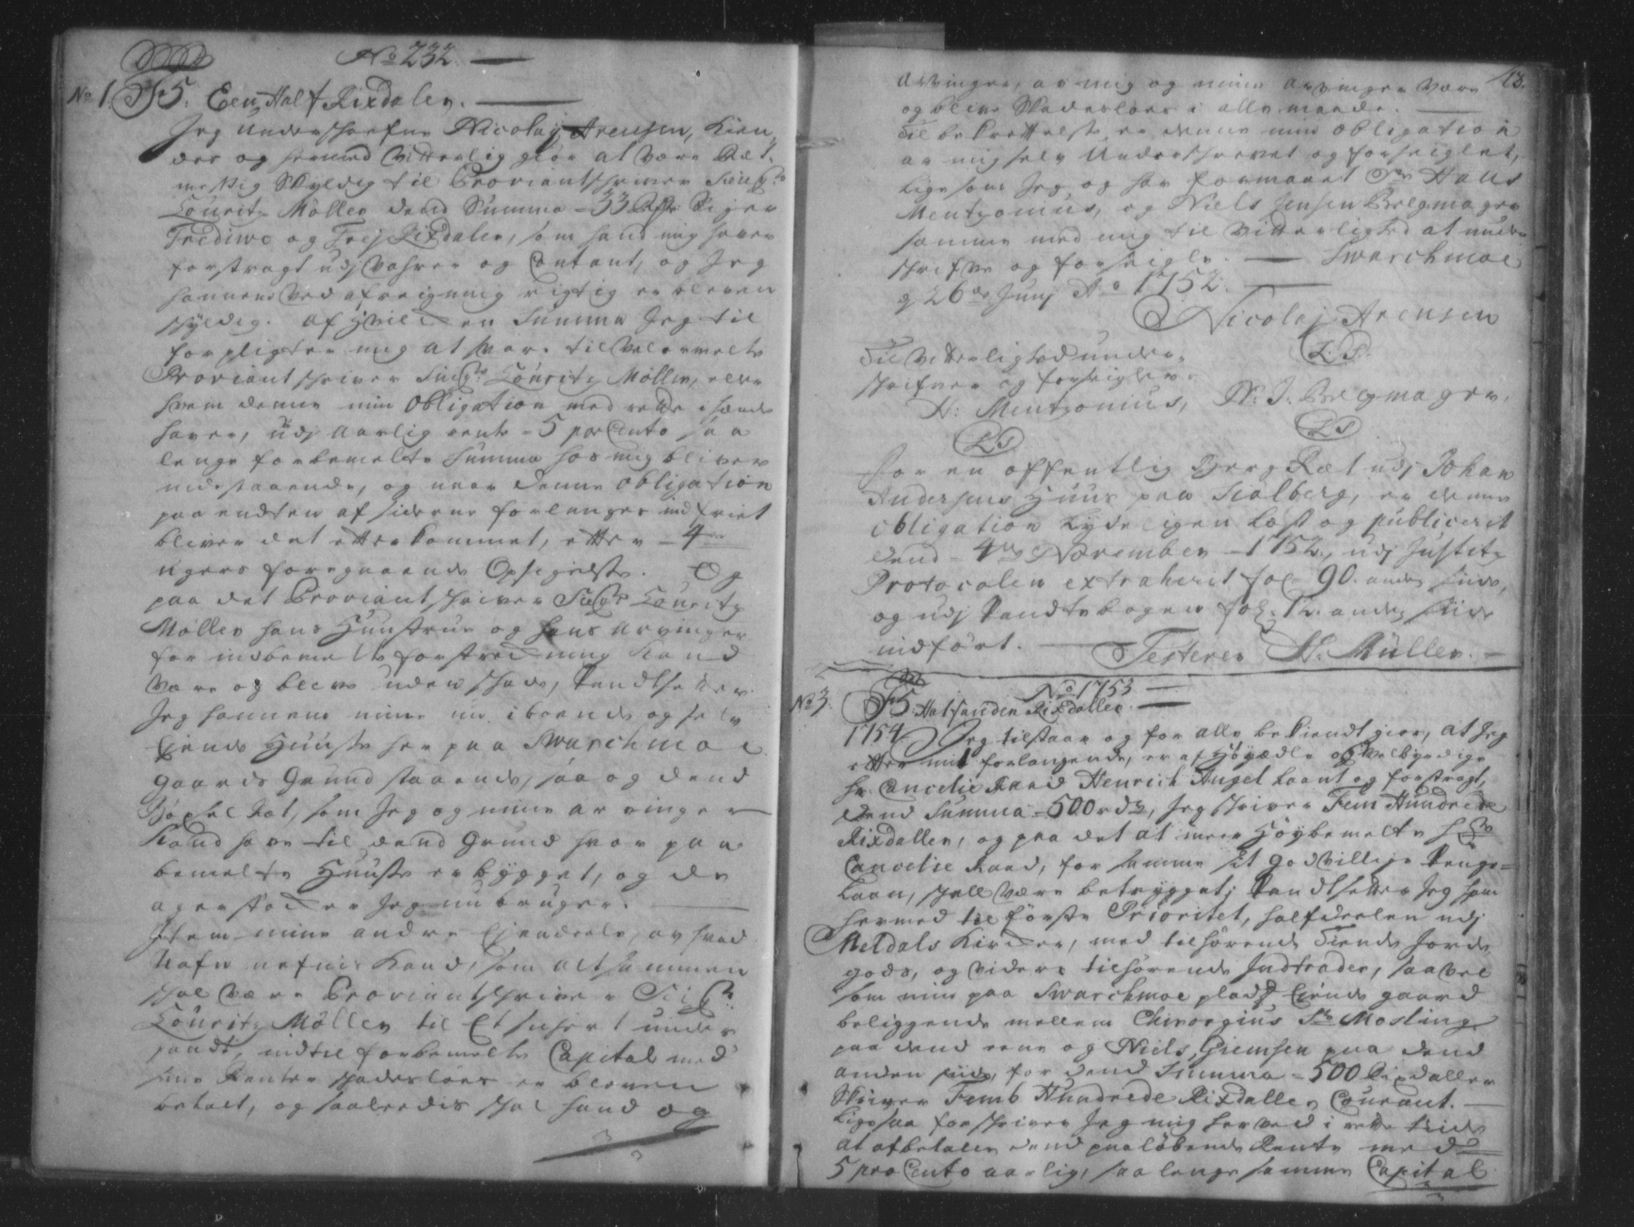 No 232.
No 1. 5. Een Half Rixdaler.
Jeg underschrefne Nicolay Arensen, Kien-
der og hermed Vitterlig giör at være Ræt-
mæssig Skyldig til Proviantschriver Sieur
Louritz Möller dend Summa - 33 Rdr skriver
Trediwe og Trej Rixdaler, som hand mig haver
forstragt udj Vahrer og Contant, og Jeg
hannem ved afreigning rigtig er bleven
skyldig. af hvilcken Summa Jeg til
forpligter mig at svare til velermelte
Proviantschriver Sieur Louritz Möller, eller
hvem denne min Obligation med rette i hænde
haver, udj aarlig rente - 5 pro Cento saa
lenge forbemelte Summa hos mig bliver
udestaaende, og naar denne Obligation
paa endten af siderne forlanges indfriet
bliver det efterkommet, efter - 4re
ugers foregaaende Opsigelse. Og
paa det Proviantschriver Sieur Louritz
Möller hans Hustrue og hans arvinger
for indbemelte forstreckning kand
være og blive uden schade, Pandtsetter
Jeg hannem mine nu iboende og selv
Ejende Huuse her paa Swarchmoe
gaards Grund staaende, saa og dend
Böxel Ræt, som Jeg og mine arvinger
kand have til dend Grund hvor paa
bemelte Huuse er bygget, og de
agerstöcker Jeg nu bruger.
Item mine andre Ejendeele, av hvad
Nafn nefnis kand, som altsammen
skal være Proviantschriver Sieur
Louritz Möller til Et sickert under-
pandt, indtil forbemelte Capital med
sine Renter schadeslöes er bleven
betalt, og saaledis skal hand og
18.
arvinger, av mig og mine arvinger være
og blive Skadeslöes i alle maade.
Til bekreftelse er denne min Obligation
av mig selv Underschrevet og forseiglet,
ligesom Jeg og har formaaet Sr Hans
Mentzonius, og Niels Jensen Bergmager
samme med mig til Vitterlighed at under-
schrifve og forseigle. Swarchmoe
d 26de Junj Ao 1752.
Nicolaj Arensen
L.S.
Til Vitterlighed under-
schrifver og forseigler.
H: Mentzonius, N. J. Bergmager.
L S L S
For en offentlig Berg Ræt udj Johan
Andersens Huus paa Scalberg, er denne
obligation lydeligen læst og publicerit
dend - 4de November - 1752, udj Justitz
Protocolen extraherit fol - 90. anden side,
og udj Pandtebogen fol: 12. anden side
indfört. Testerer H. Müller.
No 1753
No 3. 5. Halfanden Rixdaller.
1754 Jeg tilstaar og for alle bekiendt giör, at Jeg
efter min forlangende, er af Höyædle og Velbyrdige
Hr Cancelie Raad Henrich Angel laant og forstragt,
dend Summa - 500 rdr, Jeg schriver Fem Hundrede
Rixdaller, og paa det at meer Höybemelte Hr
Cancelie Raad, for samme sit godvillige Penge-
laan, skall være betrygget; Pandtsetter Jeg ham
hermed til förste Prioritet, halfdeelen udj
Meldals Kircker, med tilhörende Tiende Jorde
gods, og videre tilhörende Indtræder, saavel
som min paa Swarchmoe pladz Ejende gaard
beliggende mellem Chirorgius Sr Mosling
paa dend eene og Niels Giemsen paa dend
anden side, for dend Summa - 500 Rixdaller
Skriver Femb Hundrede Rixdaller Courant.
Ligesaa forschriver Jeg mig herved i rette tiide
at afbetale dend paalöbende Rente med
5 pro Cento aarlig, saa lenge samme Capital